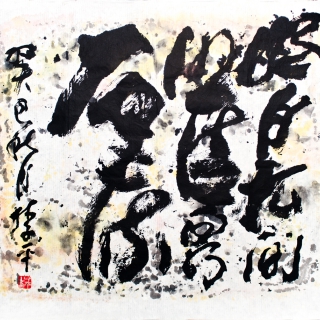 明月松间
照清泉
石上流
癸巳秋月